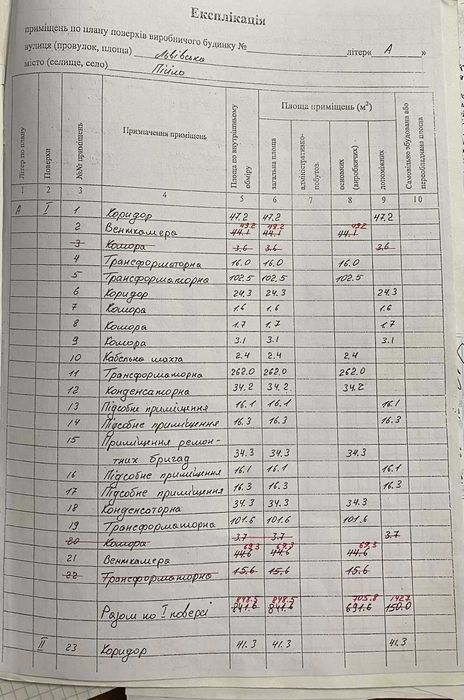 Експлікація
приміщень по плану поверхів виробничого будинку №
вулиця (провулок, площа) Львівська літера« А »
місто (селище, село) Пійло
Літер по плану
Поверхи
№№ приміщень
Призначення приміщень
Площа по внутрішньому обміру
Площа приміщень (м²)
загальна площа
адміністративно-побутов.
основних (виробничих)
допоміжних
Самовільно збудована або переобладнана площа
1 2 3 4 5 6 7 8 9 10
А I 1 Коридор 47.2 47.2 47.2
49.2 49.2 49.2
2 Венткамера 44.1 44.1 44.1
3 Комора 3.6 3.6 3.6
4 Трансформаторна 16.0 16.0 16.0
5 Трансформаторна 102.5 102.5 102.5
6 Коридор 24.3 24.3 24.3
7 Комора 1.6 1.6 1.6
8 Комора 1.7 1.7 1.7
9 Комора 3.1 3.1 3.1
10 Кабельна шахта 2.4 2.4 2.4
11 Трансформаторна 262.0 262.0 262.0
12 Конденсаторна 34.2 34.2 34.2
13 Підсобне приміщення 16.1 16.1 16.1
14 Підсобне приміщення 16.3 16.3 16.3
15 Приміщення ремон-
тних бригад 34.3 34.3 34.3
16 Підсобне приміщення 16.1 16.1 16.1
17 Підсобне приміщення 16.3 16.3 16.3
18 Конденсоторна 34.3 34.3 34.3
19 Трансформаторна 101.6 101.6 101.6
20 Комора 3.7 3.7 3.7
69.3 69.3 69.3
21 Венткамера 44.6 44.6 44.6
22 Трансформаторна 15.6 15.6 15.6
848.5 848.5 705.8 142.7
Разом по I поверсі 841.6 841.6 691.6 150.0
II 23 Коридор 41.3 41.3 41.3